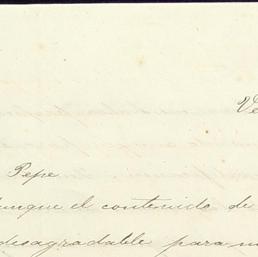 Ve
Pepe
Aunque el contenido de
desagradable para m